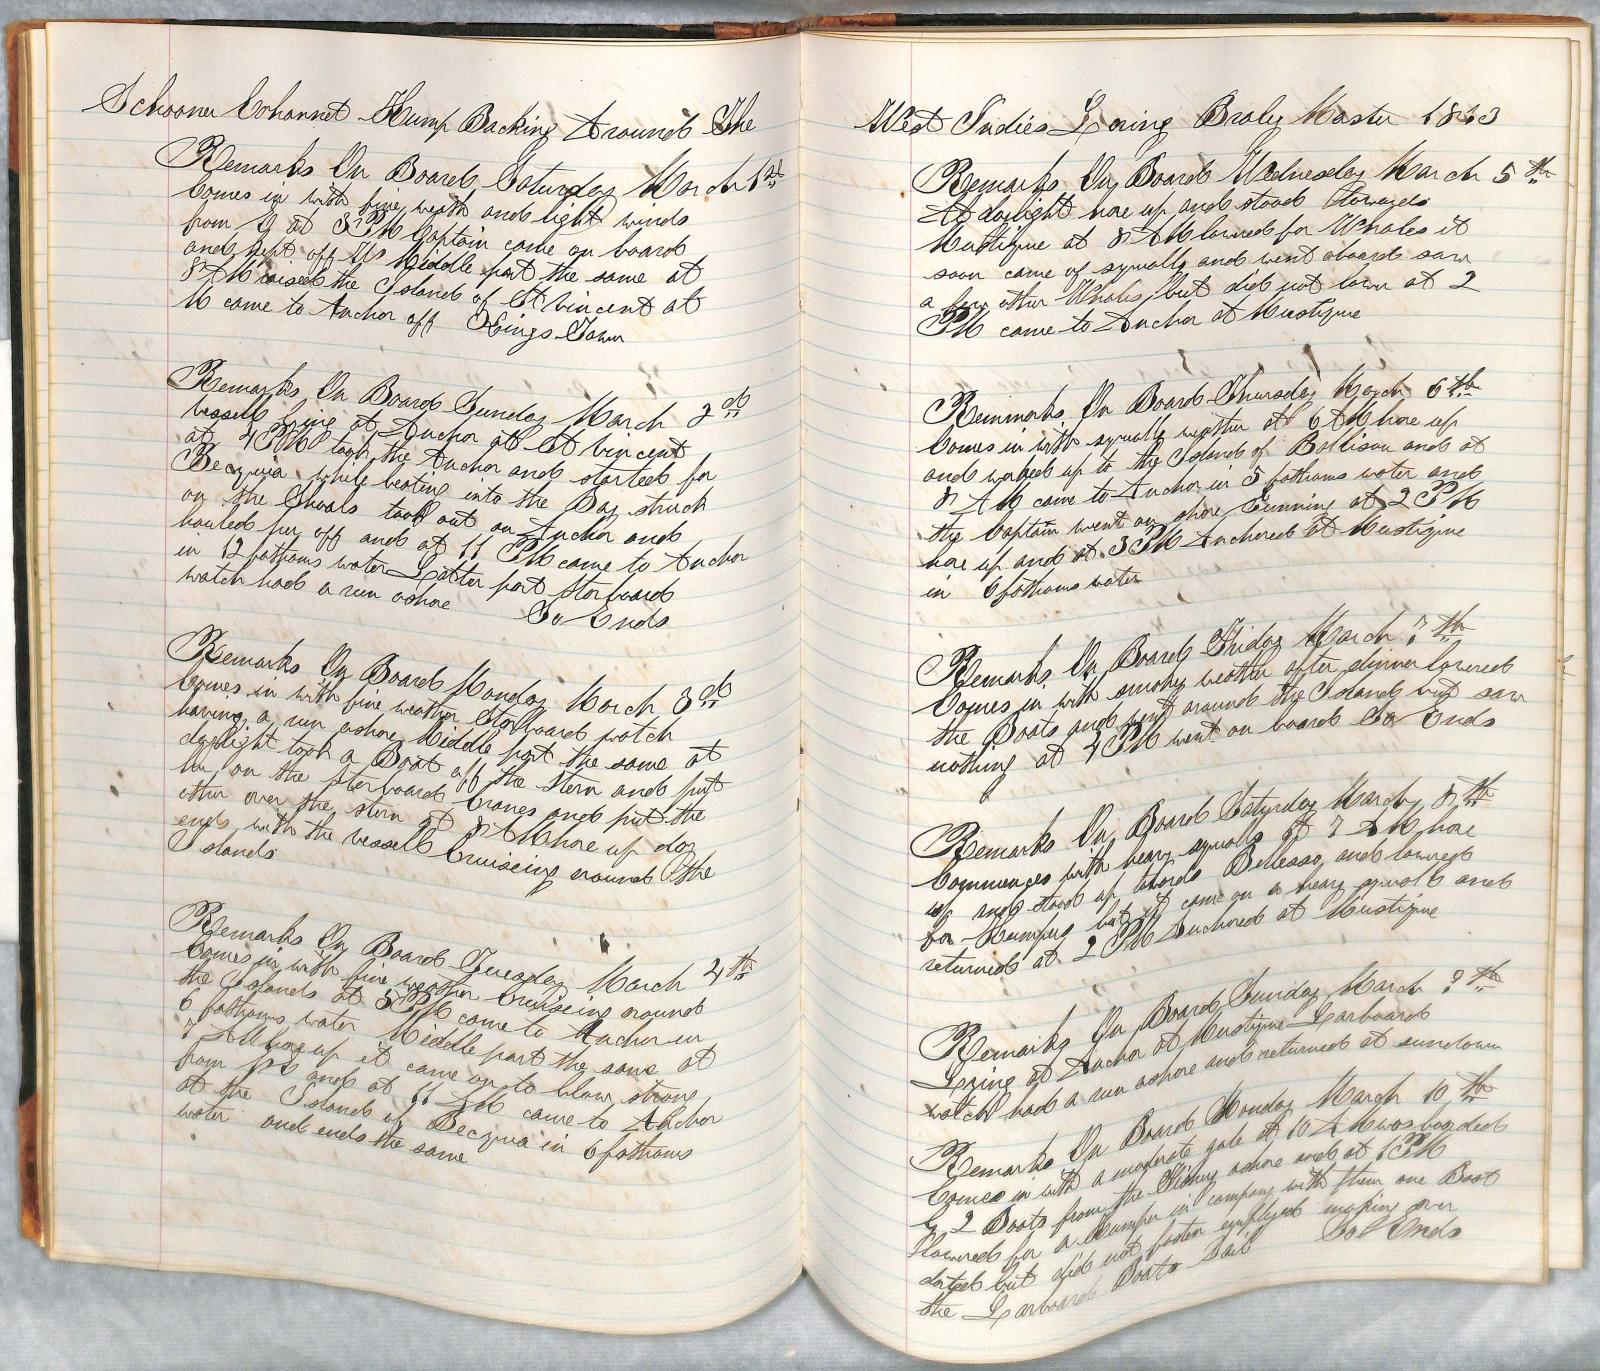 Schooner Cohannet Hump Backing Around The
Remarks On Board Saturday March 1st
Comes in with fine weath and light winds
from at 3 PM Captain came on board
and kept off Middle part the same at
8 AM raised the Island of St Vincent at
M came to Anchor off Kings Town
Remarks On Board Sunday March 2nd
vessell lying at Anchor at St Vincent
at 4 PM took the Anchor and started for
Becquia while beating into the Bay struck
on the Shoals took out an Anchor and
hauled her off and at 11 PM came to Anchor
in 12 fathoms water Latter part Starboard
watch had a run ashore So Ends
Remarks On Board Monday March 3rd
Comes in with fine weather Starboard watch
having a run ashore Middle part the same at
daylight took a Boat off the Stern and put
her on the starboard Cranes and put the
other over the stern at 8 AM hove up day
ends with the vessell Cruiseing around the
Islands
Remarks On Board Tuesday March 4th
Comes in with fine weather Cruiseing around
the Islands at 5 PM came to Anchor in
6 fathoms water Middle part the same at
7 AM hove up it came on to blow strong
from and at 11 AM came to Anchor
at the Island of Becquia in 6 fathoms
water and ends the same
West Indies Loring Braley Master 1863
Remarks On Board Wednesday March 5th
At daylight hove up and stood towards
Mustique at 8 AM lowered for Whales it
soon came up squally and went aboard saw
a few other Whales but did not lower at 2
PM came to Anchor at Mustique
Remmarks On Board Thursday March 6th
Comes in with squally weather at 6 AM hove up
and worked up to the Island of Ballison and at
8 AM came to Anchor in 5 fathoms water and
the Captain went on shore Gunning at 2 PM
hove up and at 3 PM Anchored at Mustique
in 6 fathoms water
Remarks On Board Friday March 7th
Comes in with smokey weather after dinner lowered
the Boats and went around the Island but saw
nothing at 4 PM went on board So Ends
Remarks On Board Saturday March 8th
Commences with heavy squalls at 7 AM hove
up and stood up and lowered
for Humpers but it came on a heavy squall and
returned at 2 PM Anchored at Mustique
Remarks On Board Sunday March 9th
Lying at Anchor at Mustique Larboard
watch had a run ashore and returned at sundown
Remarks On Board Monday March 10th
Comes in with a moderate gale at 10 AM was boarded
by 2 Boats from the ashore and at 1 PM
lowered for a Humper in company with them one Boat
darted but did not fasten employed making over
the Larboard Boats Sail So Ends